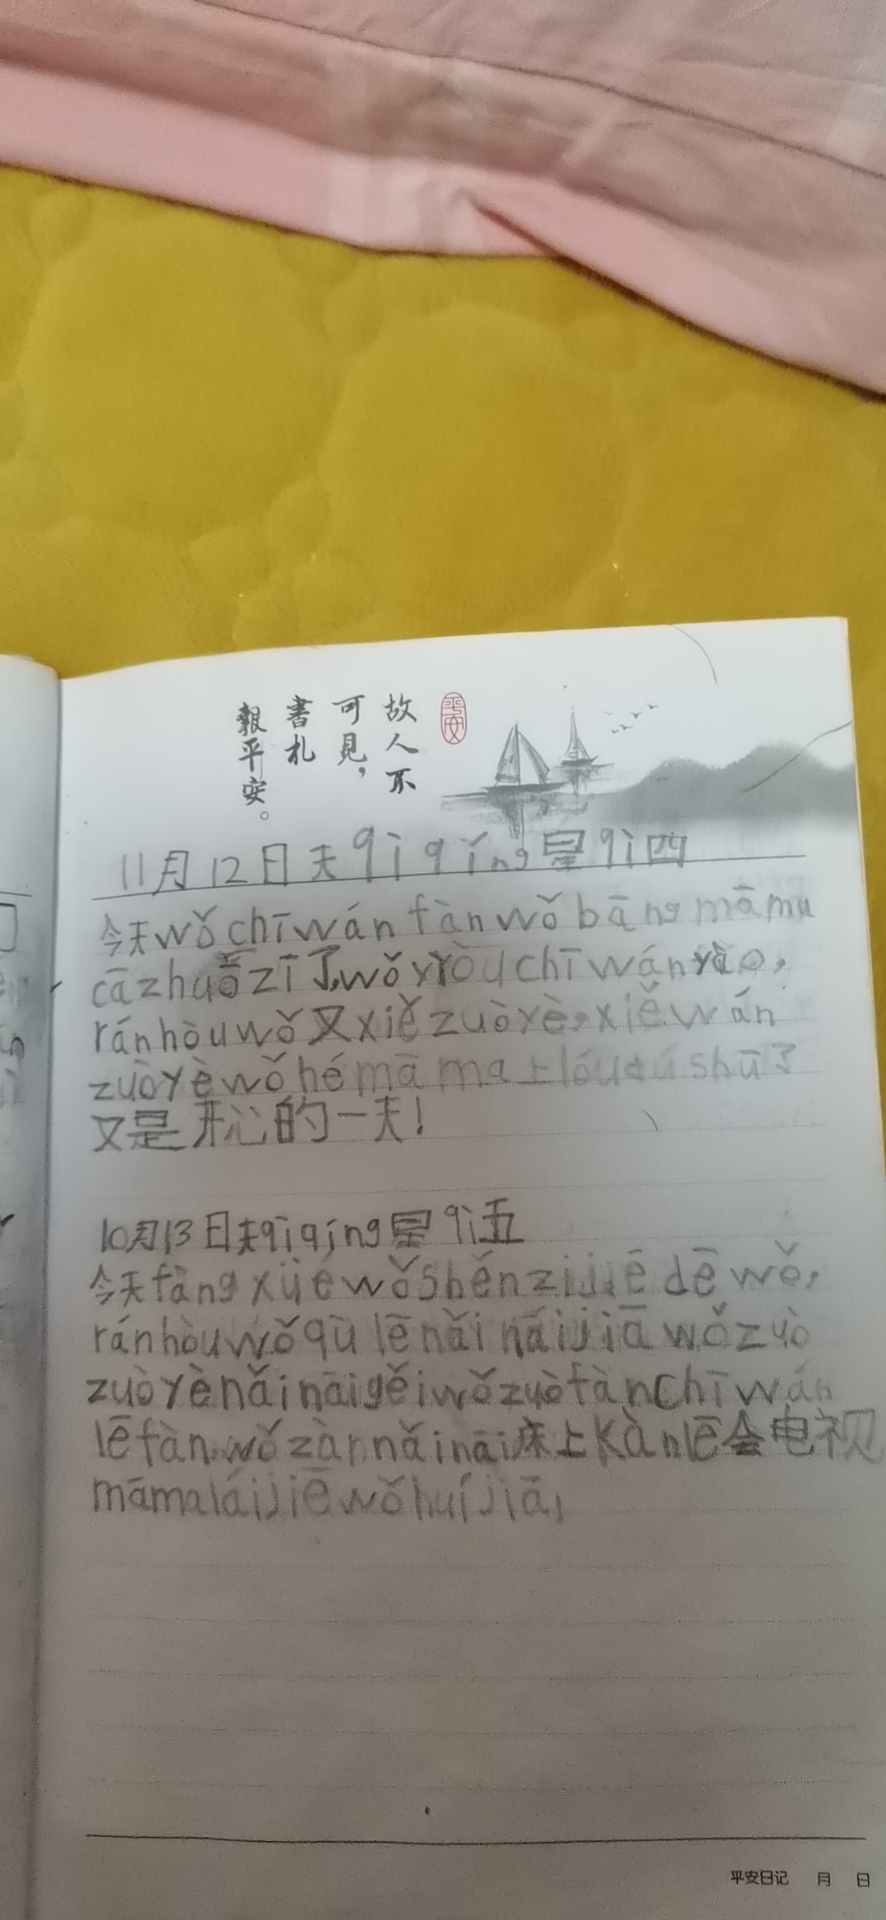 故人不
可見，
書札
報平安。
平安
11月12日天qìqíng星qì四
今天wǒchīwánfànwǒbāngmāma
cāzhuōzī了,wǒyòuchīwányào,
ránhòuwǒ又xiězuòyè,xiěwán
zuòyèwǒhémāma上lóudúshū了
又是开心的一天!
10月13日天qìqíng星qì五
今天fàngxüéwǒshěnzijiēdēwǒ,
ránhòuwǒqùlēnǎinǎijiāwǒzuò
zuòyènǎināigěiwǒzuòfànchīwán
lēfàn,wǒzàinǎināi床上kànlē会电视
māmaláijiēwǒhuíjiā,
平安日记 月 日